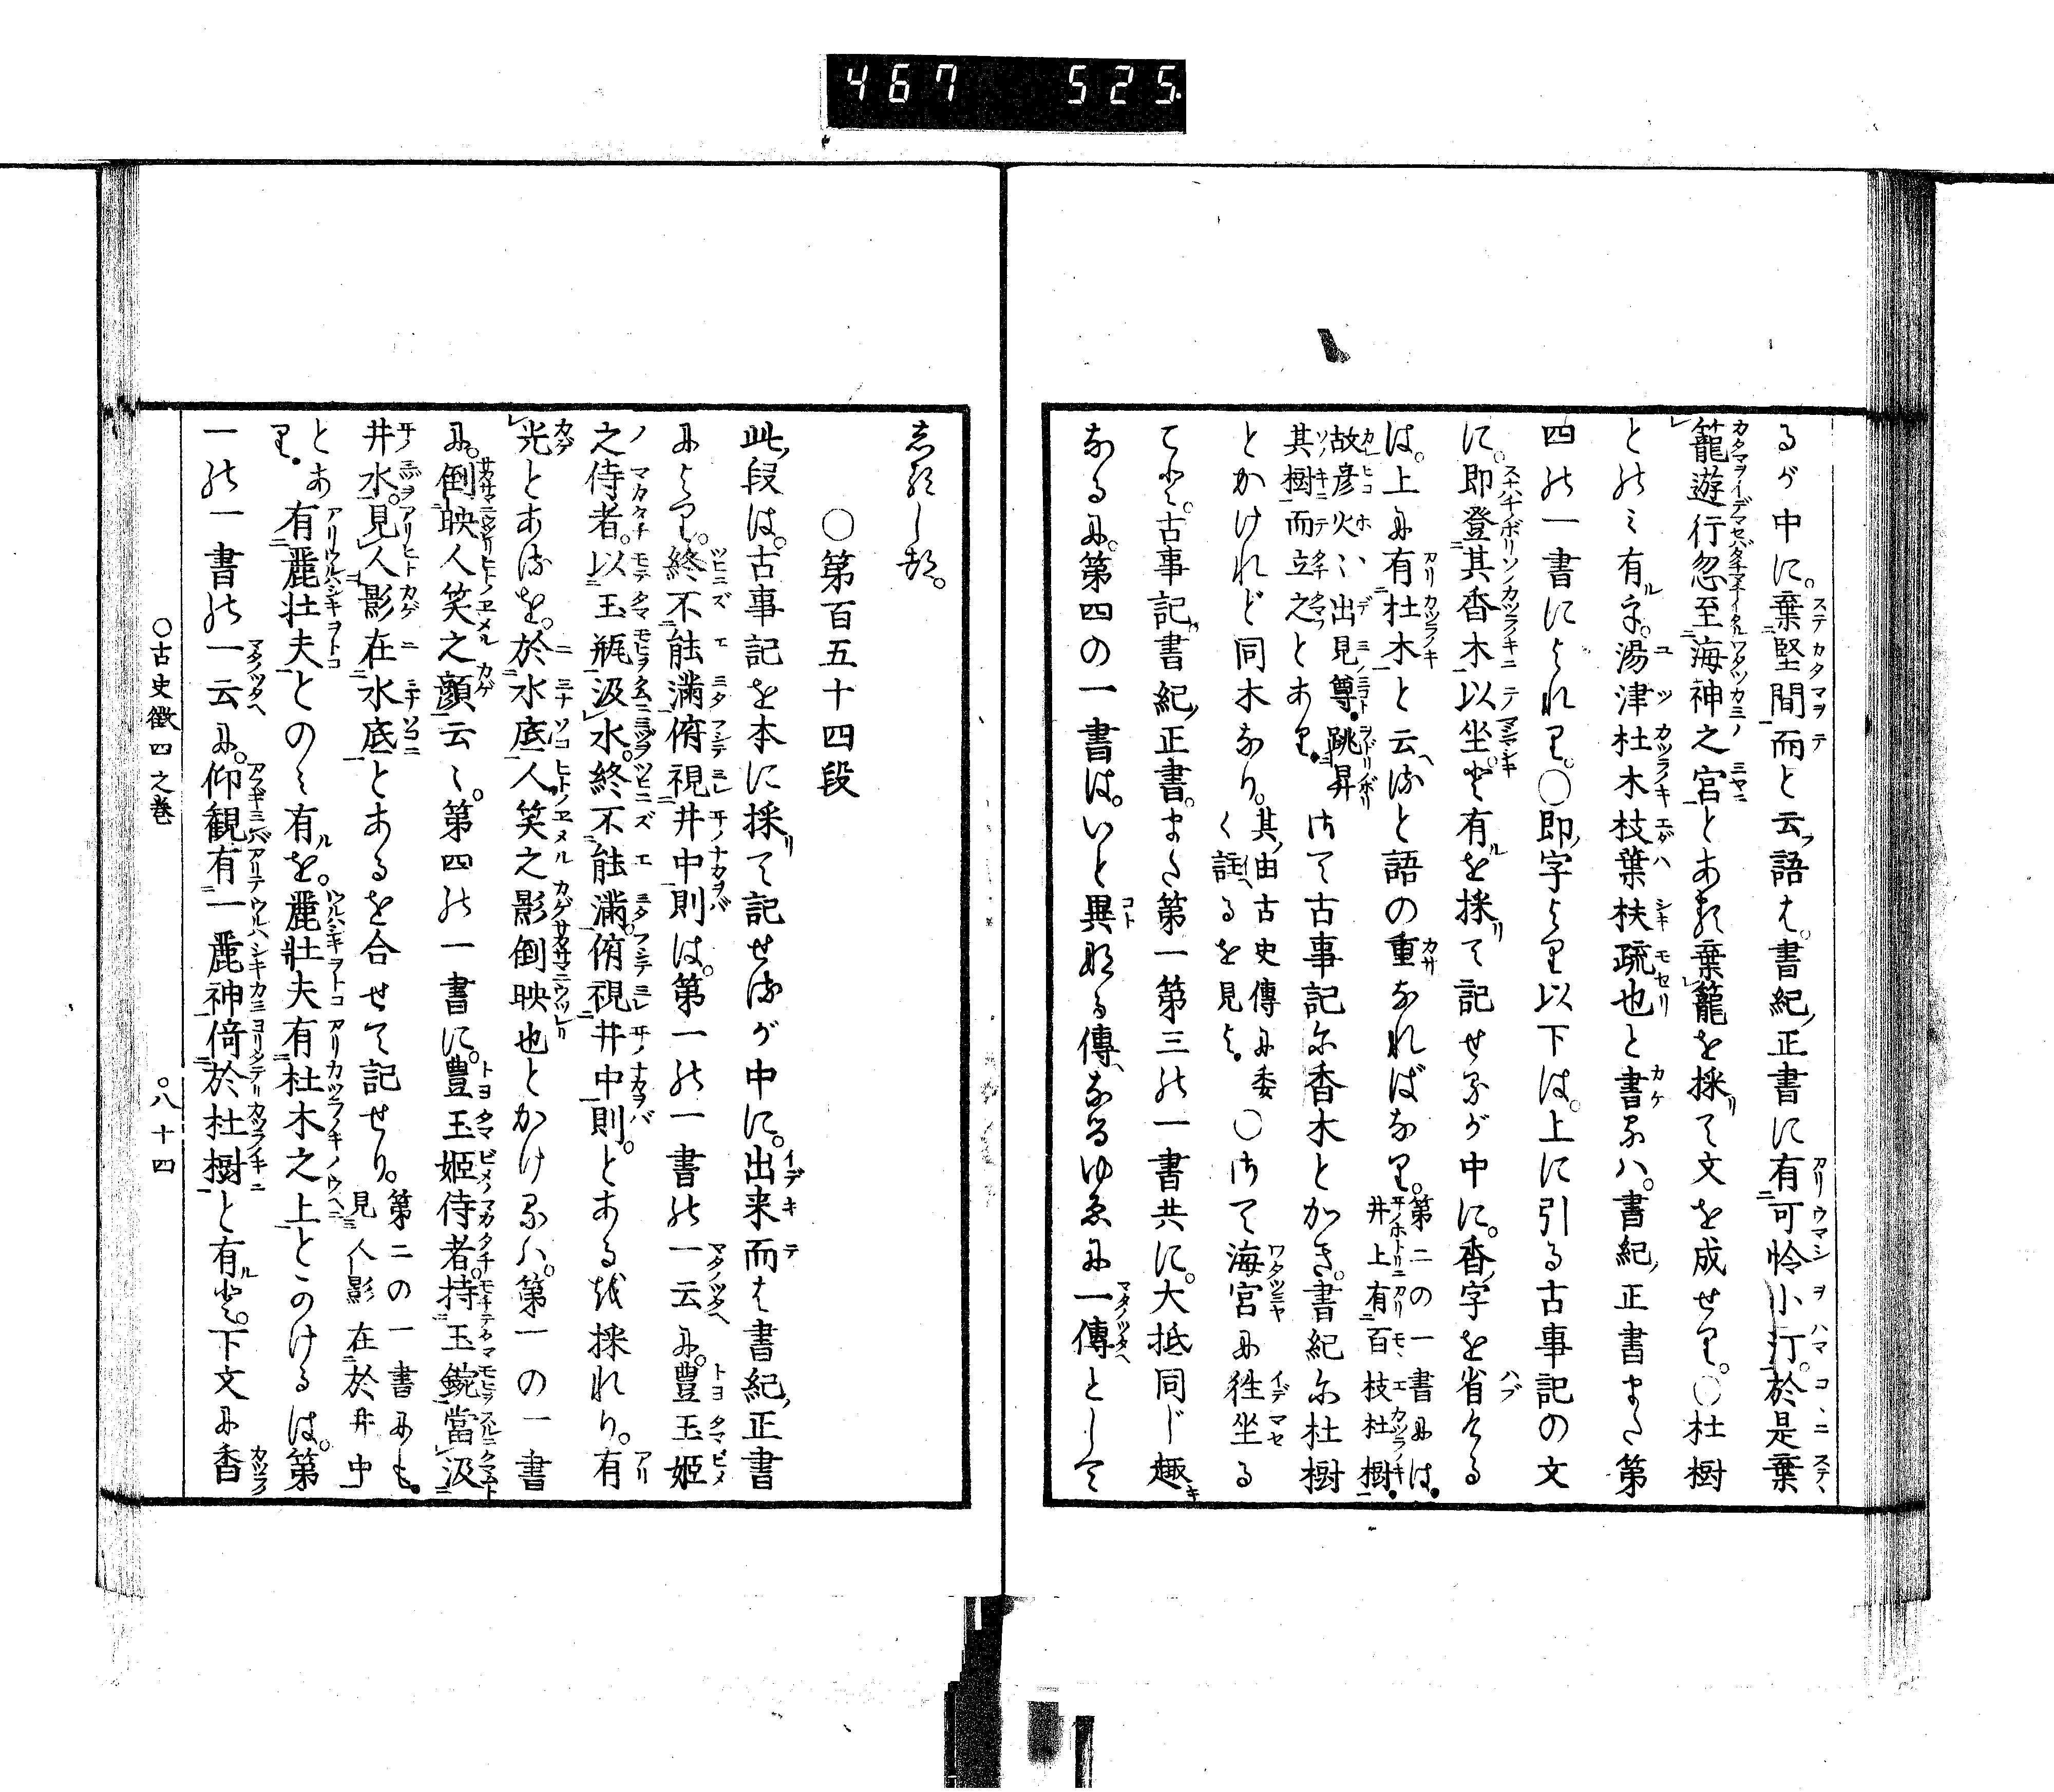 467 525
るが中に。棄堅間而と云フ語は。書紀ノ正書に有可怜小汀。於是棄
籠遊行忽至海神之宮とある棄籠を採リて文を成せり。〇杜樹
とのミ有ルを。湯津杜木枝葉扶疏也と書るハ。書紀ノ正書また第
四の一書によれり。〇即ノ字より以下は。上に引る古事記の文
に。即登其香木以坐。と有ルを採リて記せるが中に。香ノ字を省ける
は。上に有杜木と云ヘると語の重なればなり。第二の一書には。井上有百枝杜樹。
故彦火々出見尊。跳昇其樹而立之とあり。さて古事記に香木とかき。書紀に杜樹
とかけれど同木なり。其ノ由古史傳に委く註ヘるを見よ。〇さて海宮に往坐る
てと。古事記書紀ノ正書。また第一第三の一書共に。大抵同じ趣キ
なるに。第四の一書は。いと異なる傳ヘなるゆゑに一傳として
志るしつ。
〇第百五十四段
此ノ段は。古事記を本に採リて記せるが中に。出来而は書紀ノ正書
によれり。終不能滿俯視井中則は。第一の一書の一云に。豊玉姫
之侍者。以玉瓶汲水。終不能滿。俯視井中則。とあるを採れり。有
光とあるを。於水底人笑之影倒映也とかけるハ。第一の一書
に。倒映人笑之顔云々。第四の一書に。豊玉姫侍者。持玉鋺當汲
井水。見人影在水底とあるを合せて記せり。第二の一書にも。見人影在於井中
とあり。有麗壮夫とのミ有ルを。麗壮夫有杜木之上とかけるは。第
一の一書の一云に。仰觀有一麗神倚於杜樹と有ルと。下文に香
〇古史徴四之巻 〇八十四